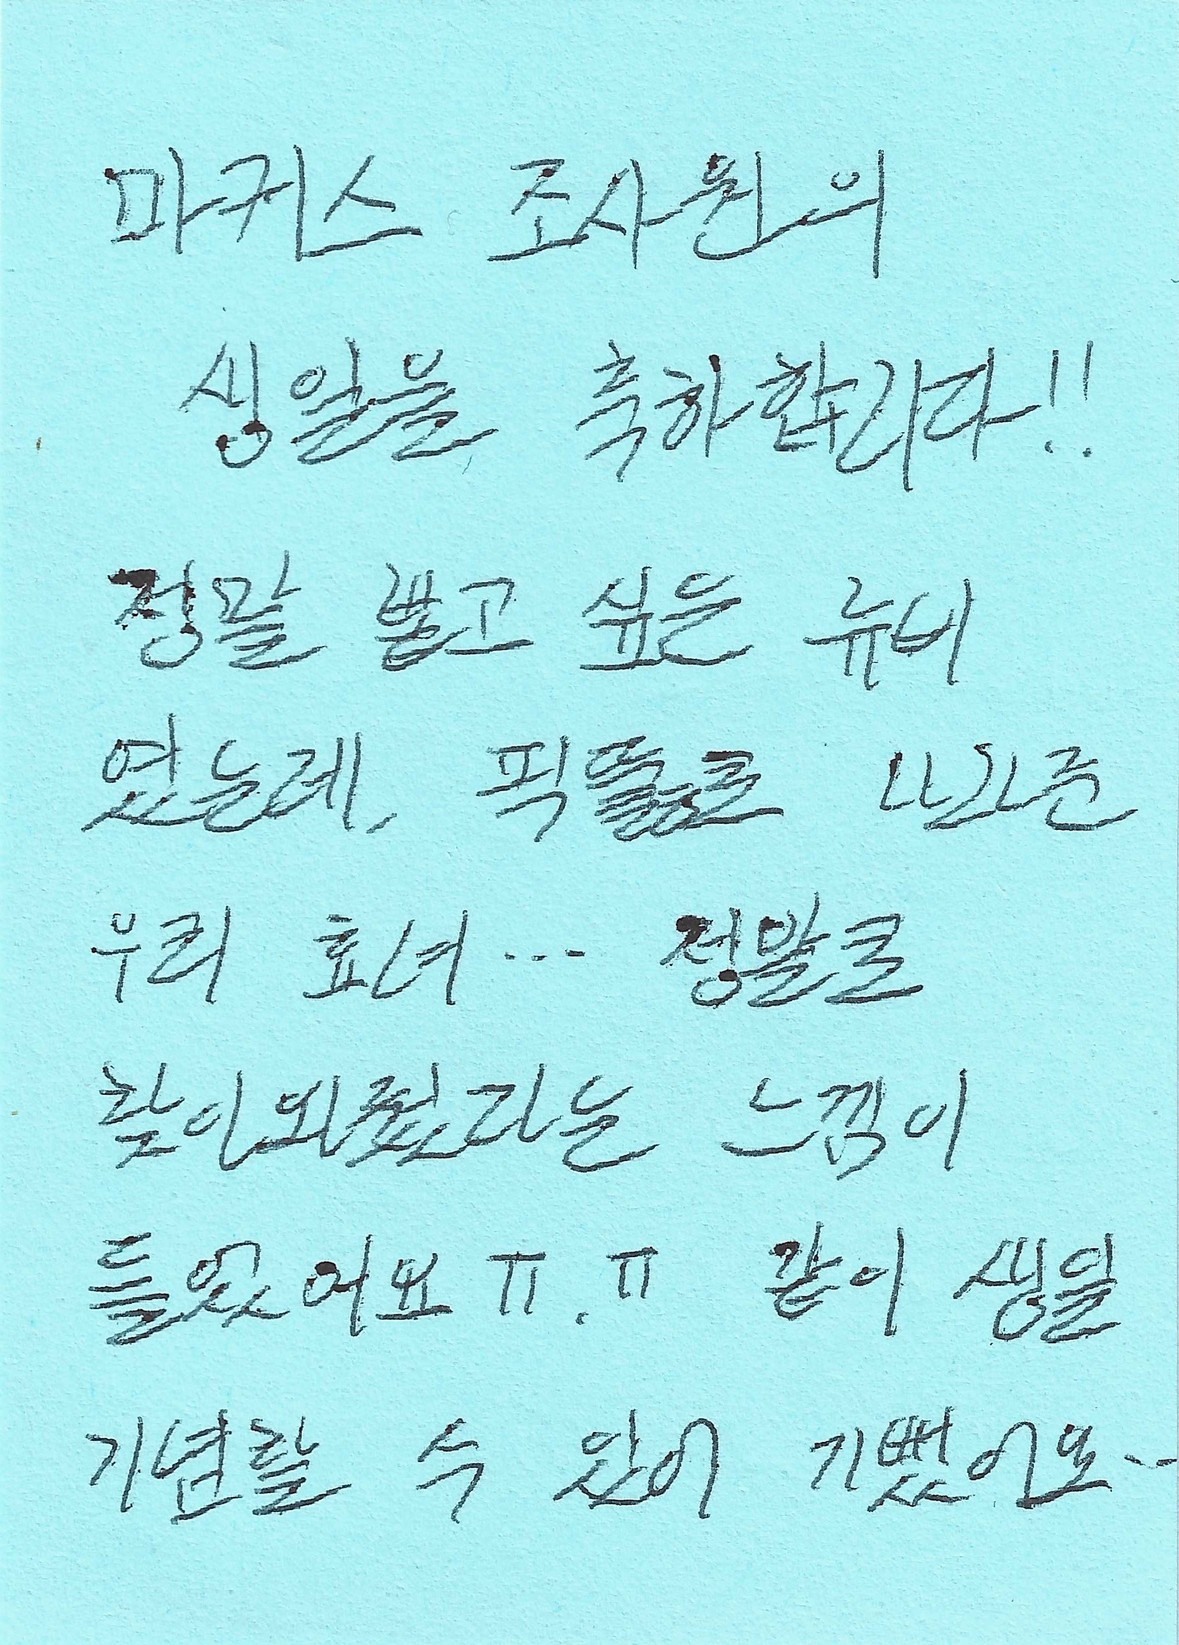 마커스 조사원의
생일을 축하합니다!!
정말 뽑고 싶은 뉴비
였는데, 픽뚫로 나와준
우리 효녀… 정말로
찾아와줬다는 느낌이
들었어요 ㅠ.ㅠ 같이 생일
기념할 수 있어 기뻤어요..